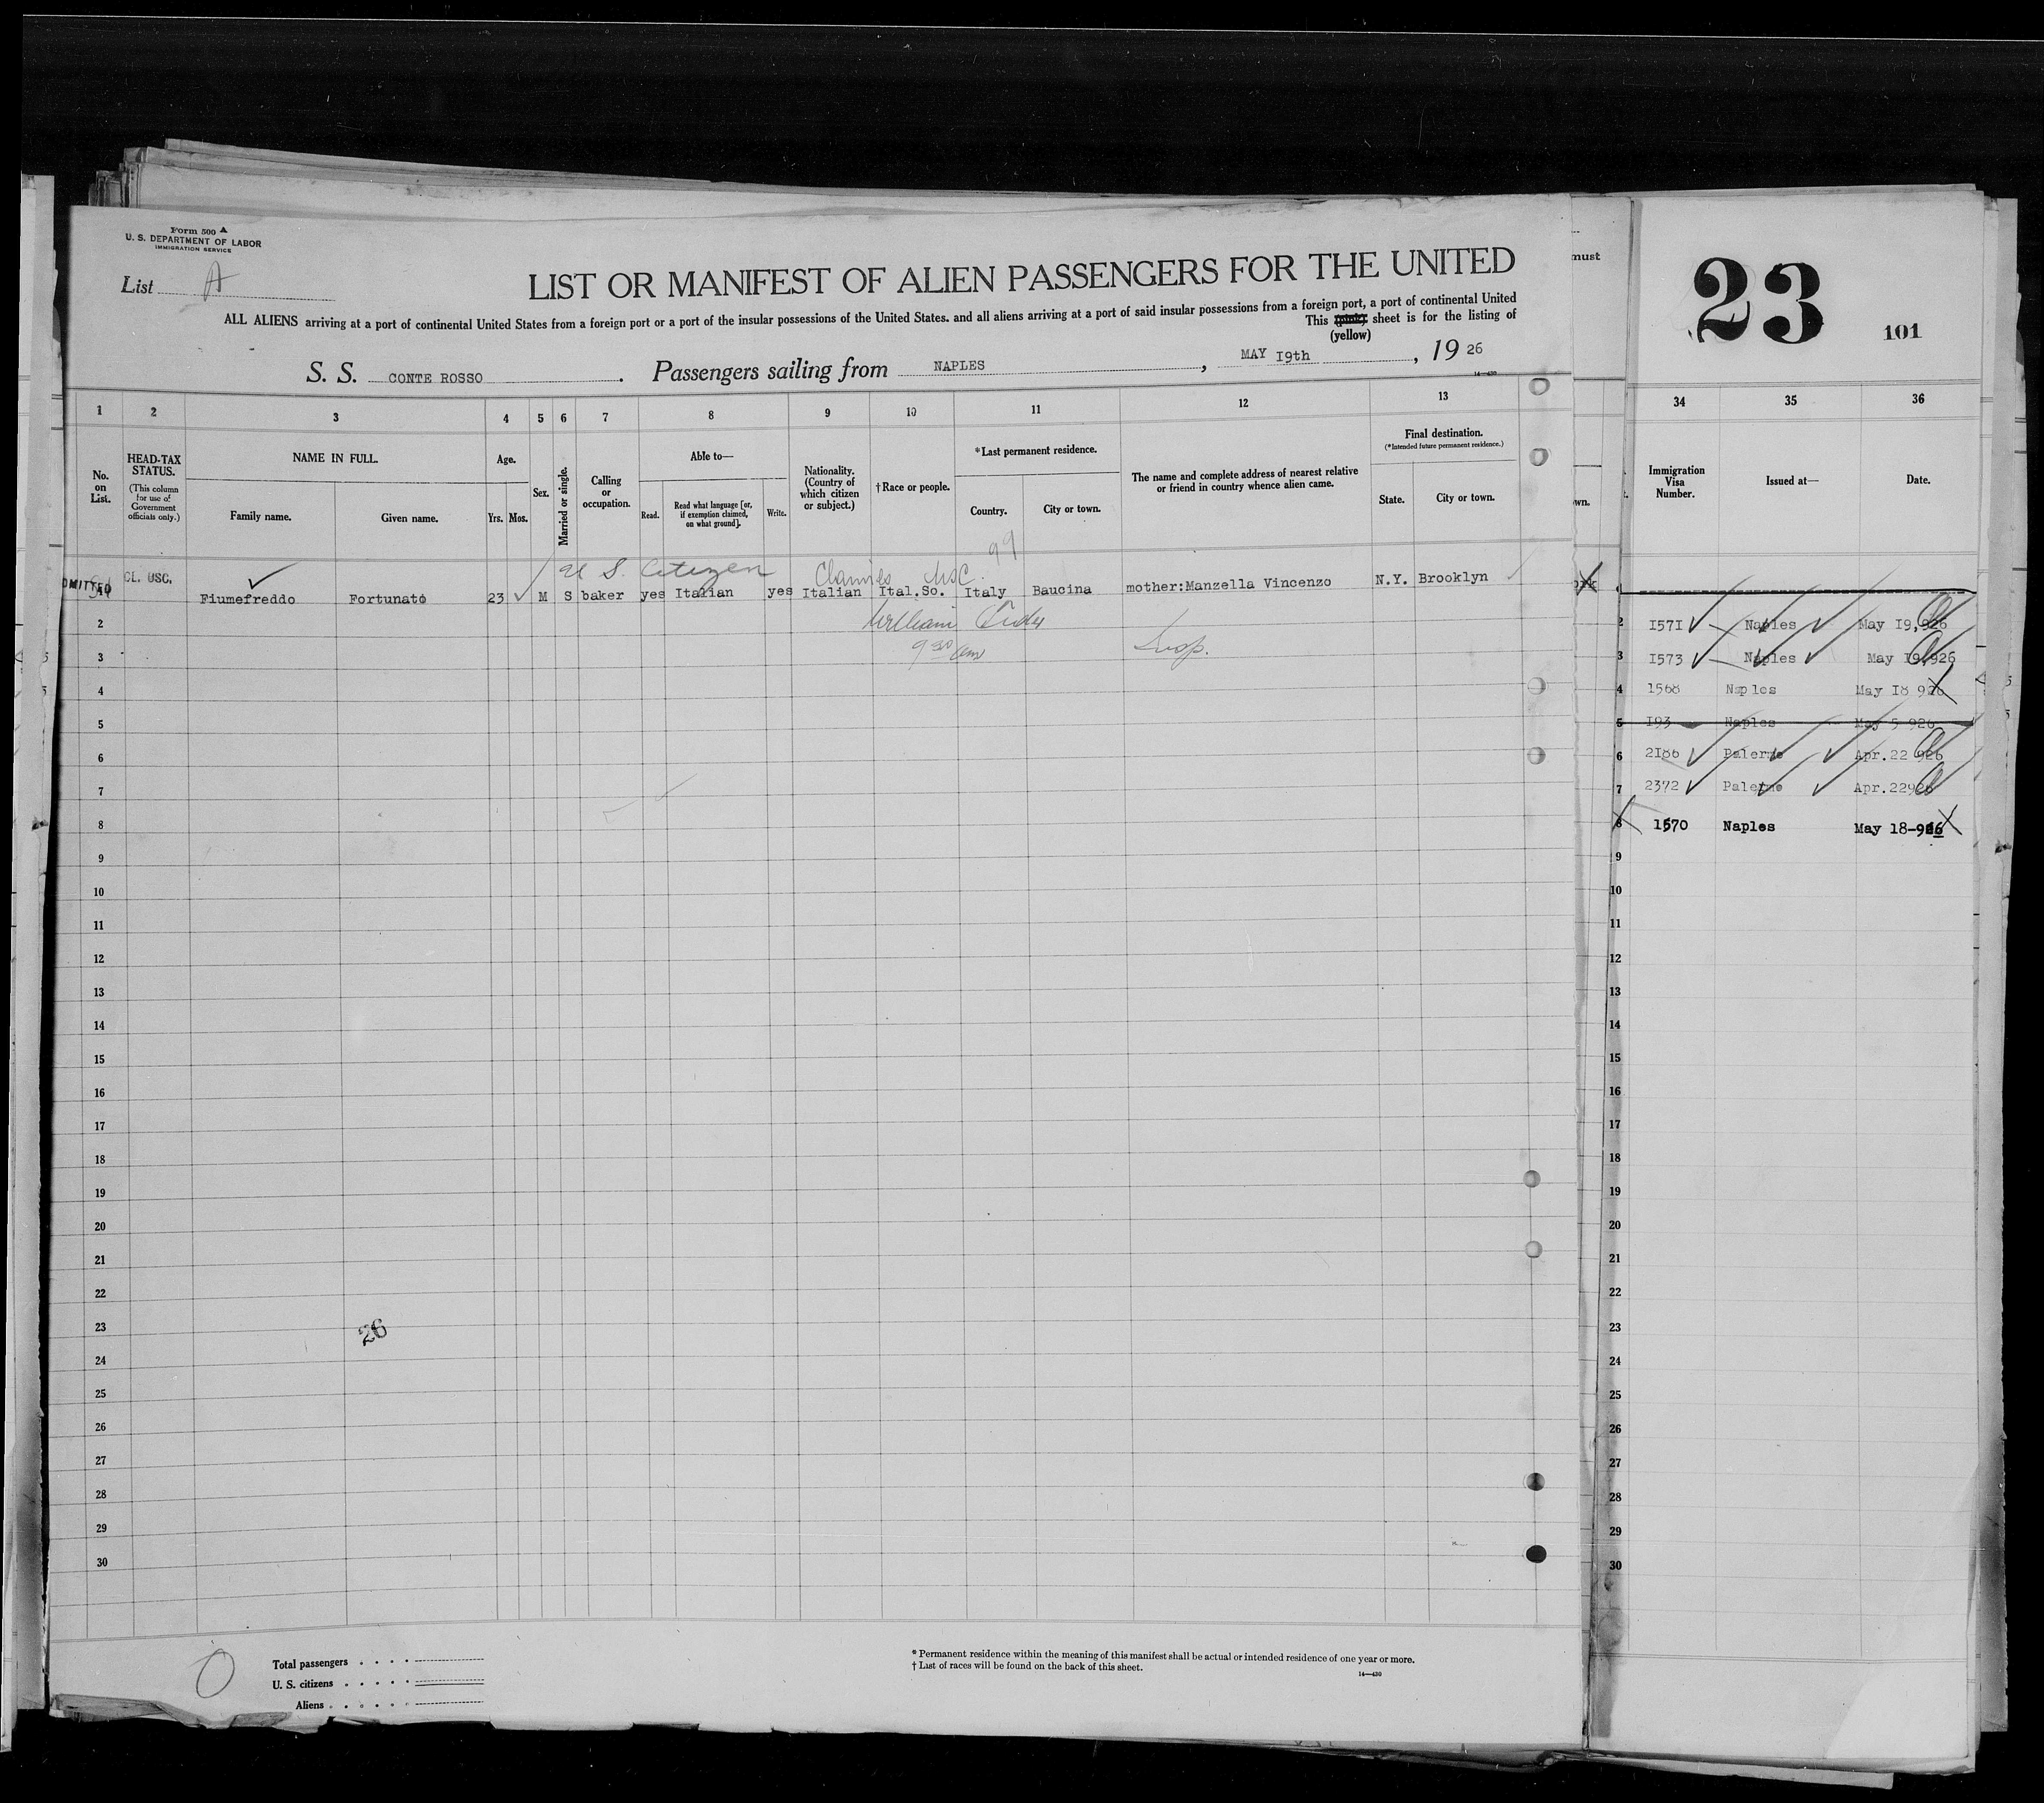 Form 500 A
U. S. DEPARTMENT OF LABOR
IMMIGRATION SERVICE
List A
LIST OR MANIFEST OF ALIEN PASSENGERS FOR THE UNITED
ALL ALIENS arriving at a port of continental United States from a foreign port or a port of the insular possessions of the United States, and all aliens arriving at a port of said insular possessions from a foreign port, a port of continental United
This (pink) sheet is for the listing of
(yellow)
S. S. CONTE ROSSO. Passengers sailing from NAPLES, MAY 19th, 19 26
14—430
1 2 3 4 5 6 7 8 9 10 11 12 13
No. on List.
HEAD-TAX STATUS.
(This column for use of Government officials only.)
NAME IN FULL.
Family name. Given name.
Age.
Yrs. Mos.
Sex.
Married or single.
Calling or occupation.
Able to—
Read. Read what language [or, if exemption claimed, on what ground]. Write.
Nationality. (Country of which citizen or subject.)
†Race or people.
*Last permanent residence.
Country. City or town.
The name and complete address of nearest relative or friend in country whence alien came.
Final destination.
(*Intended future permanent residence.)
State. City or town.
99
U S. Citizen Claims USC.
ADMITTED CL. USC. Fiumefreddo Fortunato 23 M S baker yes Italian yes Italian Ital.So. Italy Baucina mother:Manzella Vincenzo N.Y. Brooklyn
2 William
3 9 30 am Insp.
4
5
6
7
8
9
10
11
12
13
14
15
16
17
18
19
20
21
22
23
26
24
25
26
27
28
29
30
0
Total passengers
U. S. citizens
Aliens
* Permanent residence within the meaning of this manifest shall be actual or intended residence of one year or more.
† List of races will be found on the back of this sheet.
14—430
must
wn.
ork
23
101
34 35 36
Immigration Visa Number.
Issued at—
Date.
2 1571 Naples May 19,926
3 1573 Naples May 19,926
4 1568 Naples May 18 926
5 193 Naples May 5 926
6 2186 Palermo Apr.22 926
7 2372 Palermo Apr.22926
8 1570 Naples May 18-926
9
10
11
12
13
14
15
16
17
18
19
20
21
22
23
24
25
26
27
28
29
30